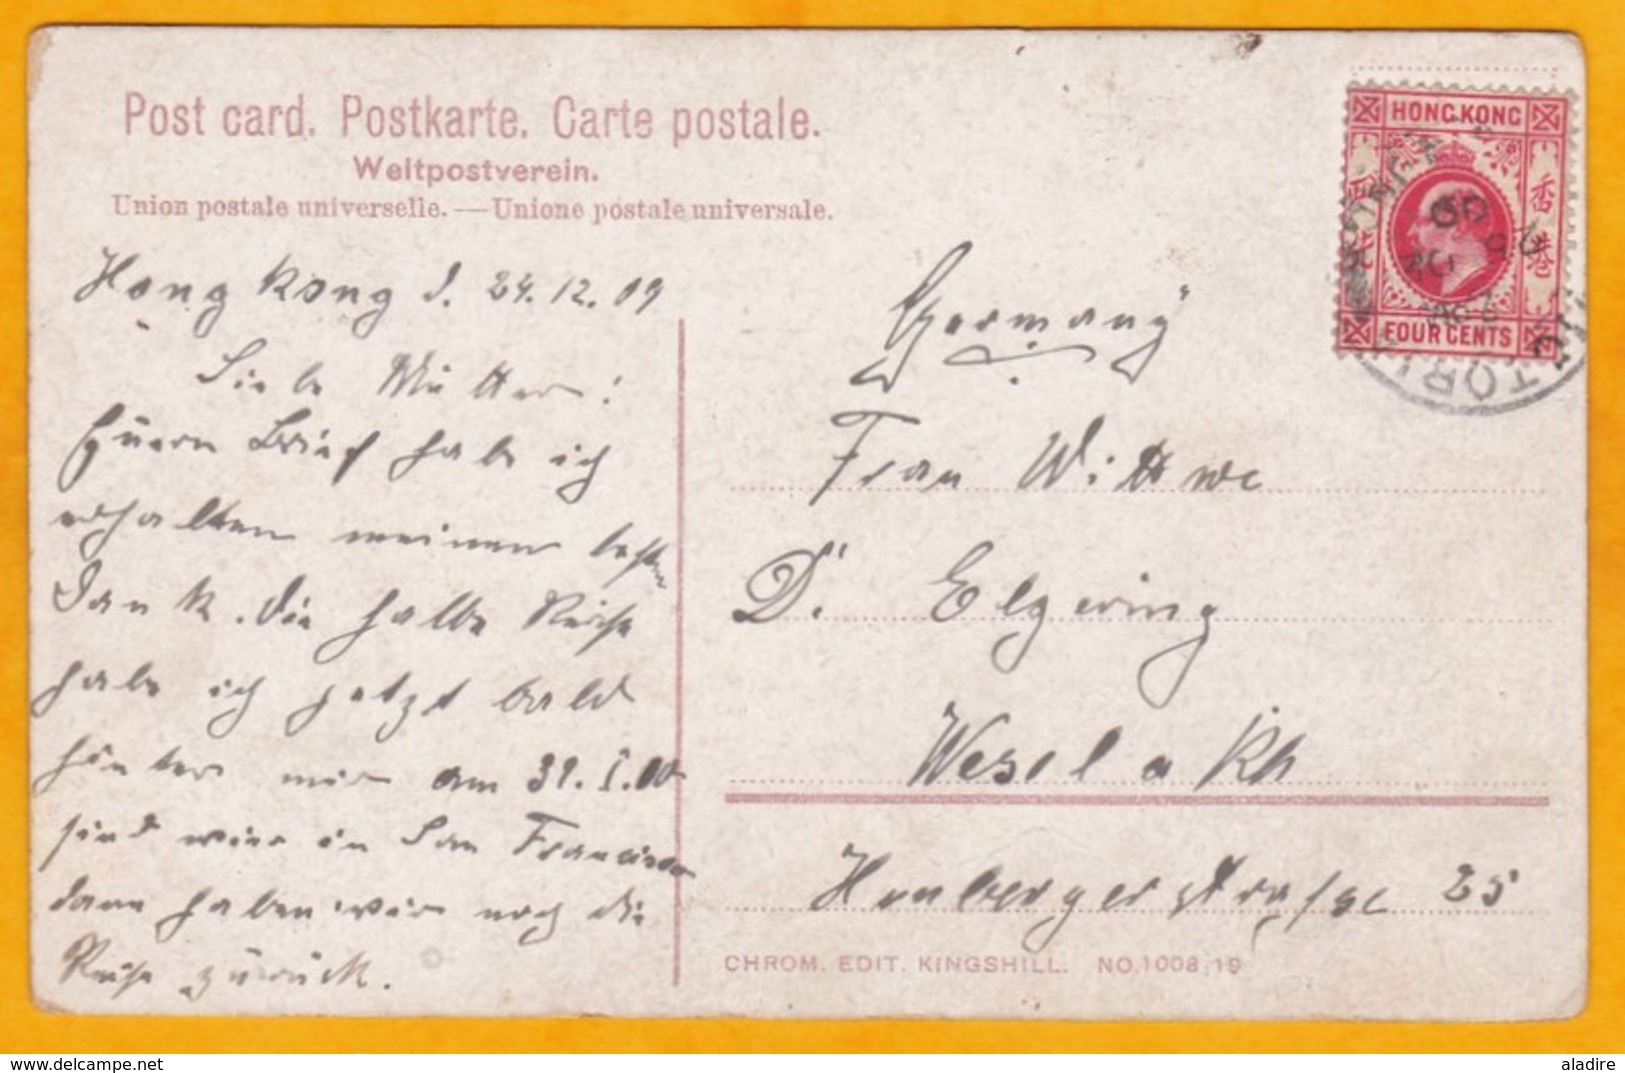 Post card. Postkarte. Carte postale.
Weltpostverein.
Union postale universelle. — Unione postale universale.
HONG KONG
香港
FOUR CENTS
VICTORIA
HONG KONG
Hong Kong d. 24.12.09
Liebe Mutter!
Euern Brief habe ich
erhalten meinen besten
Dank. Die halbe Reise
habe ich jetzt bald
hinter mir am 31.I.10
sind wir in San Francisco
dann haben wir noch die
Reise zurück.
Germany
Frau Wittwe
D. Elgering
Wesel a Rh
strasse 25
CHROM. EDIT. KINGSHILL. NO. 1008,19
delcampe.net
aladire